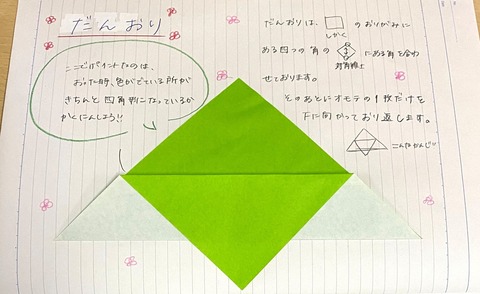 だんおり
ここでポイントなのは、
おった時、色がでている所が
きちんと四角形になっているか
かくにんしよう!!
だんおりは、 のおりがみに
しかく
ある四つの角の にある角を合わ
対角線上
せております。
そのあとにオモテの1枚だけを
下に向かっており返します。
こんなかんじ!!